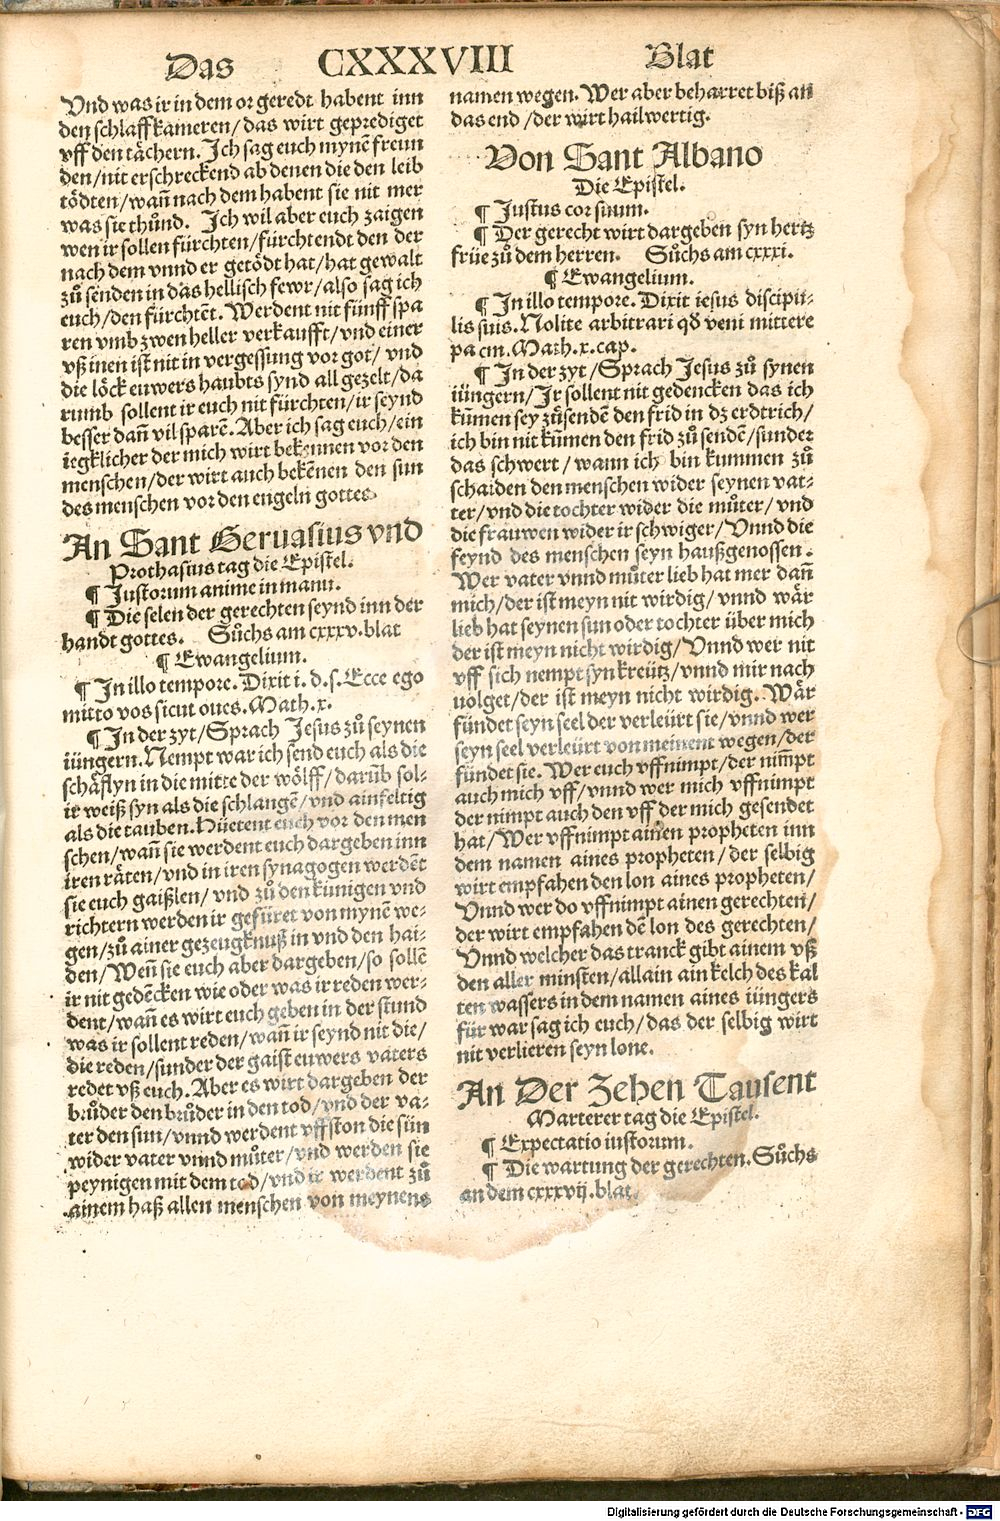 Das CXXXVIII Blat
Vnd was ir in dem or geredt habent inn
den schlaffkameren/das wirt geprediget
vff den tächern. Ich sag euch mynē freun
den/nit erschreckend ab denen die den leib
tödten/wañ nach dem habent sie nit mer
was sie thůnd. Ich wil aber euch zaigen
wen ir sollen fürchten/fürchtendt den der
nach dem vnnd er getödt hat/hat gewalt
zů senden in das hellisch fewr/also sag ich
euch/den fürchtēt. Werdent nit fünff spa
ren vmb zwen heller verkaufft/vnd einer
vß inen ist nit in vergessung vor got/vnd
die löck euwers haubts synd all gezelt/da
rumb sollent ir euch nit fürchten/ir seynd
besser dañ vil sparē. Aber ich sag euch/ein
iegklicher der mich wirt bekennen vor den
menschen/der wirt auch bekēnen den sun
des menschen vor den engeln gottes
An Sant Geruasius vnd
Prothasius tag die Epistel.
¶ Iustorum anime in manu.
¶ Die selen der gerechten seynd inn der
handt gottes. Sůchs am cxxxv.blat
¶ Ewangelium.
¶ In illo tempore. Dixit i. d. s. Ecce ego
mitto vos sicut oues. Math.x.
¶ In der zyt/Sprach Jesus zů seynen
iüngern. Nempt war ich send euch als die
schäflyn in die mitte der wölff/darūb sol-
ir weiß syn als die schlangē/vnd ainfeltig
als die tauben. Hüetent euch vor den men
schen/wañ sie werdent euch dargeben inn
iren räten/vnd in iren synagogen werdēt
sie euch gaißlen/vnd zů den künigen vnd
richtern werden ir gefüret von mynē we-
gen/zů ainer gezeugknuß in vnd den hai-
den/Weñ sie euch aber dargeben/so sollē
ir nit gedēcken wie oder was ir reden wer-
dent/wañ es wirt euch geben in der stund
was ir sollent reden/wañ ir seynd nit die/
die reden/sunder der gaist euwers vaters
redet vß euch. Aber es wirt dargeben der
brůder den brůder in den tod/vnd der va-
ter den sun/vnnd werdent vffston die sün
wider vater vnnd můter/vnd werden sie
peynigen mit dem tod/vnd ir werdent zů
ainem haß allen menschen von meynens
namen wegen. Wer aber beharret biß an
das end/der wirt hailwertig.
Von Sant Albano
Die Epistel.
¶ Iustus cor suum.
¶ Der gerecht wirt dargeben syn hertz
früe zů dem herren. Sůchs am cxxxi.
¶ Ewangelium.
¶ In illo tempore. Dixit iesus discipu-
lis suis. Nolite arbitrari qđ veni mittere
pacm. Math.x.cap.
¶ In der zyt/Sprach Jesus zů synen
iüngern/Ir sollent nit gedencken das ich
kūmen sey zůsendē den frid in dz erdtrich/
ich bin nit kūmen den frid zů sendē/sunder
das schwert/wann ich bin kummen zů
schaiden den menschen wider seynen vat-
ter/vnd die tochter wider die můter/vnd
die frauwen wider ir schwiger/Vnnd die
feynd des menschen seyn haußgenossen.
Wer vater vnnd můter lieb hat mer dañ
mich/der ist meyn nit wirdig/vnnd wär
lieb hat seynen sun oder tochter über mich
der ist meyn nicht wirdig/Vnnd wer nit
vff sich nempt syn kreütz/vnnd mir nach
uolget/der ist meyn nicht wirdig. Wär
fündet seyn seel der verleürt sie/vnnd wer
seyn seel verleürt von meinent wegen/der
fündet sie. Wer euch vffnimpt/der nim̄pt
auch mich vff/vnnd wer mich vffnimpt
der nimpt auch den vff der mich gesendet
hat/Wer vffnimpt ainen propheten inn
dem namen aines propheten/der selbig
wirt empfahen den lon aines propheten/
Vnnd wer do vffnimpt ainen gerechten/
der wirt empfahen dē lon des gerechten/
Vnnd welcher das tranck gibt ainem vß
den aller minsten/allain ain kelch des kal
ten wassers in dem namen aines iüngers
für war sag ich euch/das der selbig wirt
nit verlieren seyn lone.
An Der Zehen Tausent
Marterer tag die Epistel.
¶ Expectatio iustorum.
¶ Die wartung der gerechten. Sůchs
an dem cxxxvij.blat.
Digitalisierung gefördert durch die Deutsche Forschungsgemeinschaft - DFG